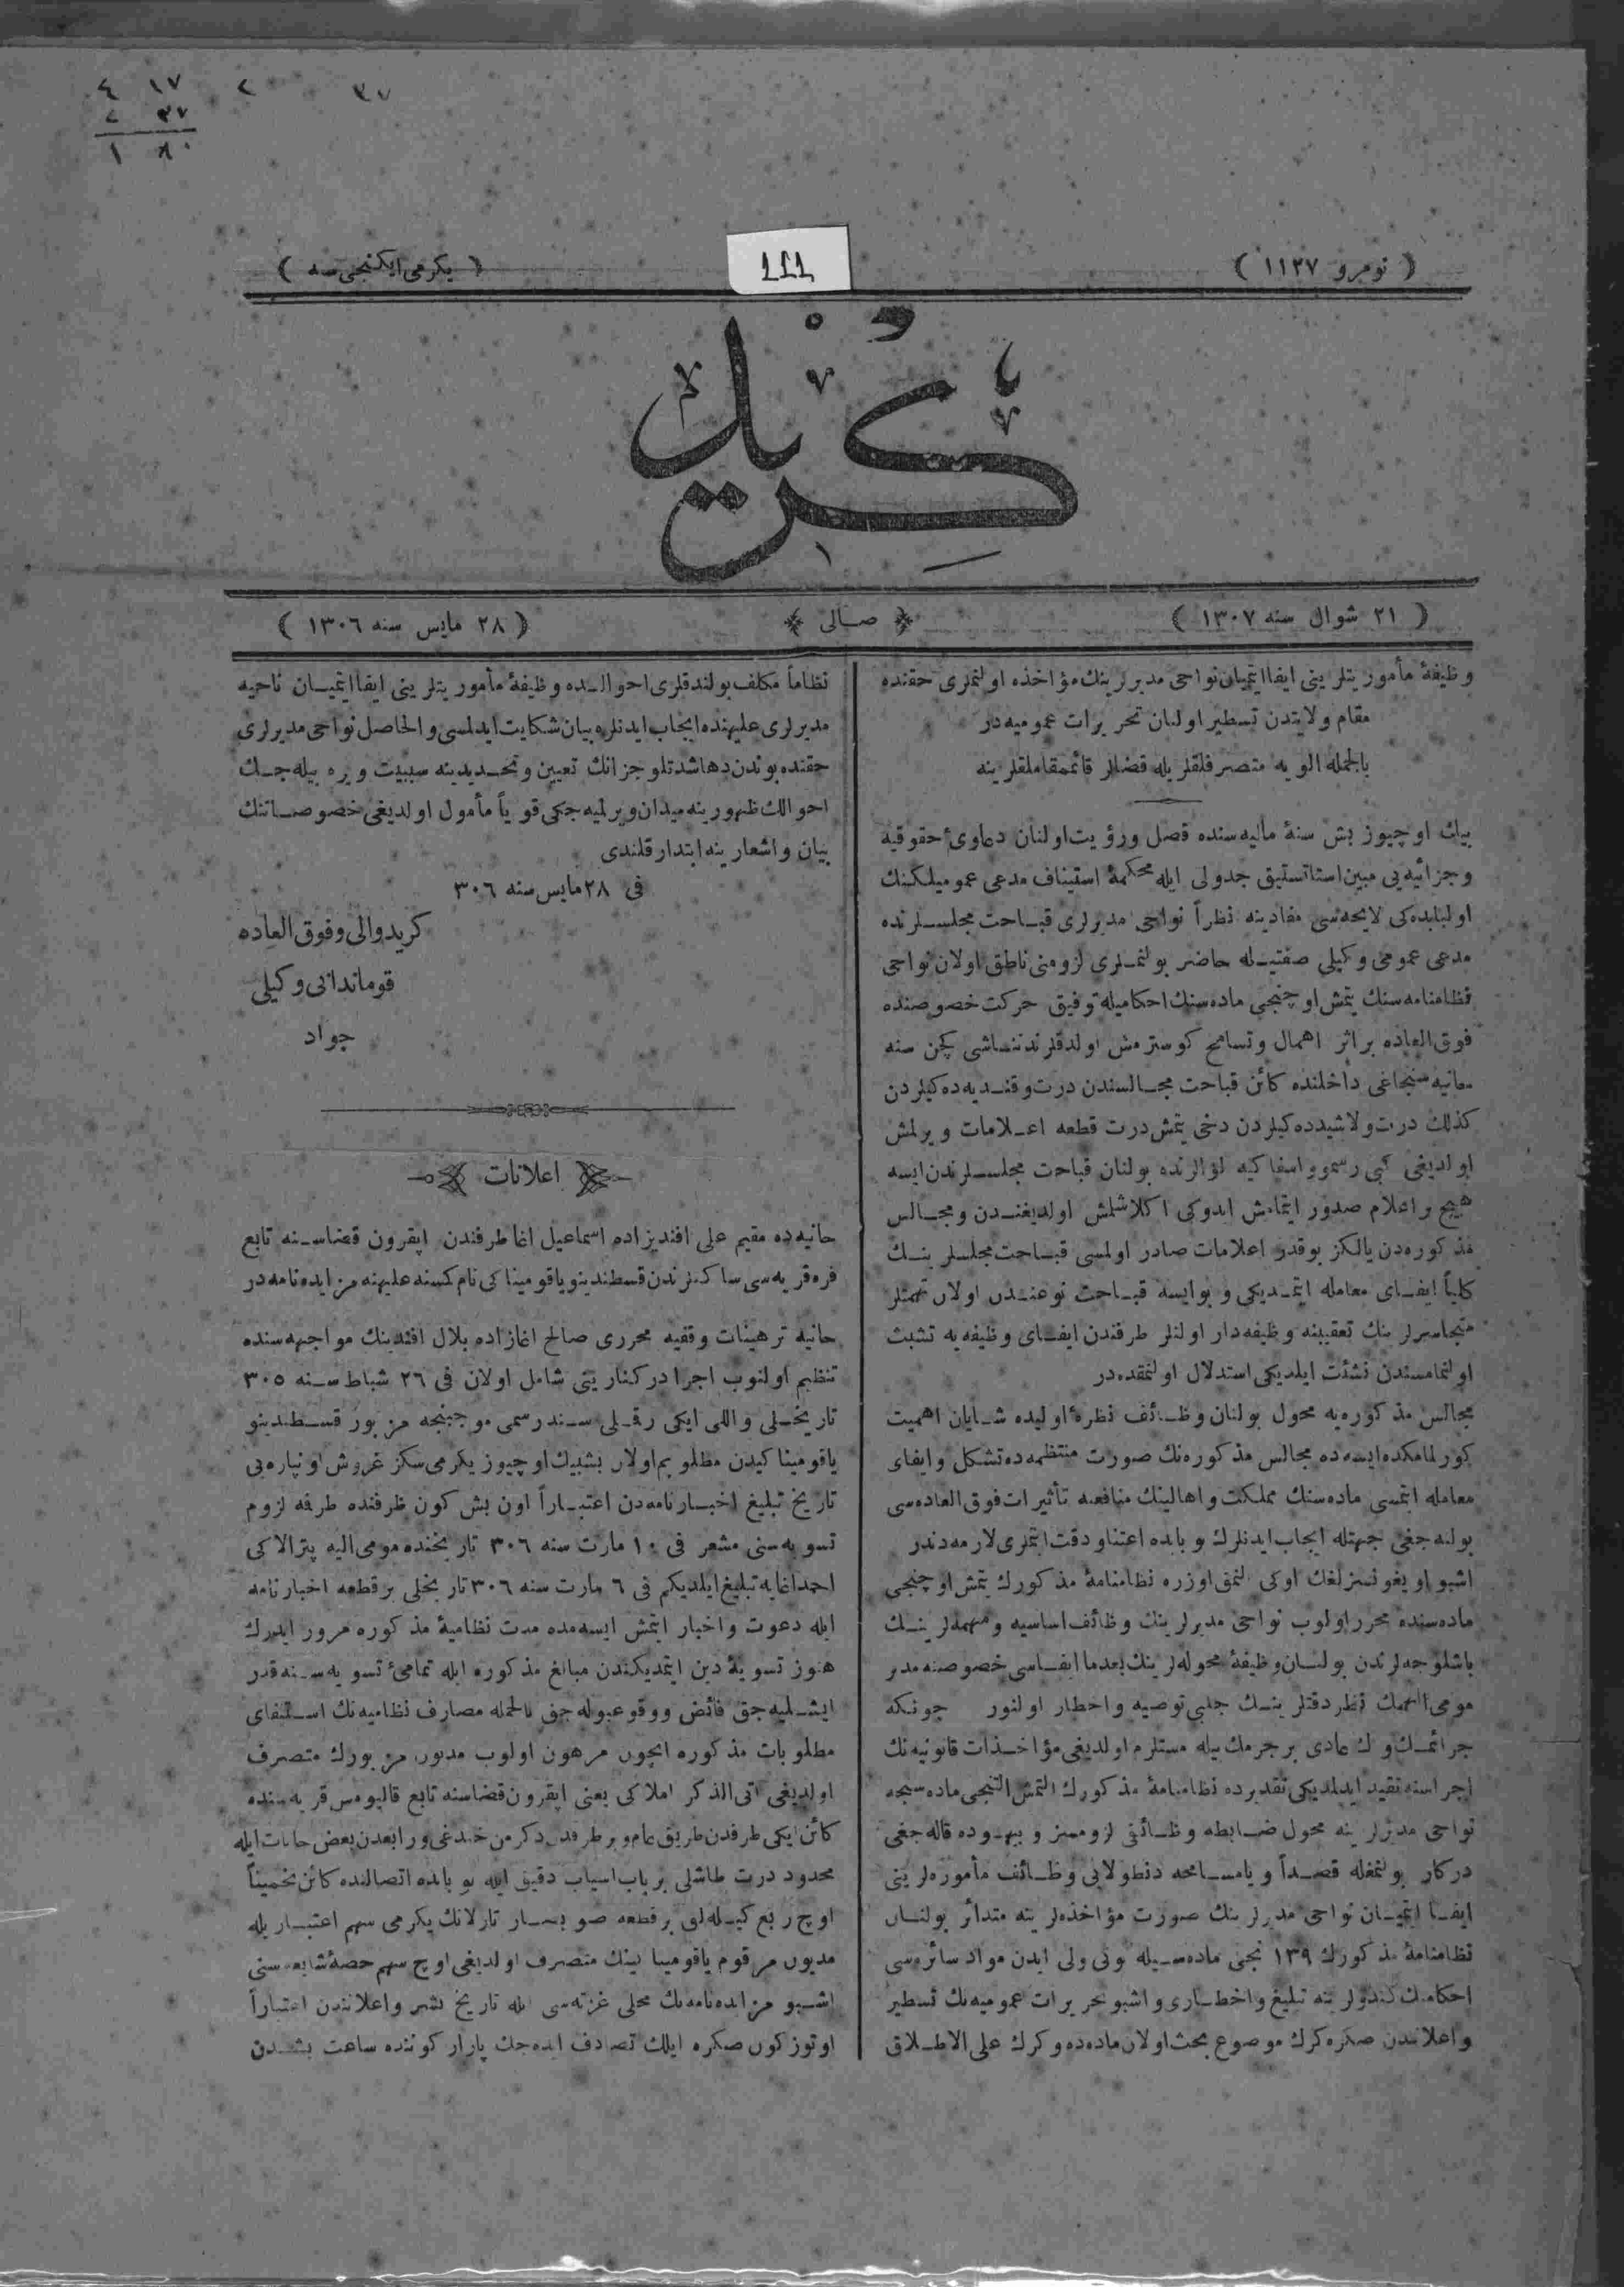 ٤ ١٧ ٢ ٣٧
١١١
( نومرو ١١٢٧ )
( يكرمى ايكنجى سنه )
كريد
( ٢١ شوال سنه ١٣٠٧ )
صالى
( ٢٨ مايس سنه ١٣٠٦ )
وظيفهٔ مأموريتلرينى ايفا ايتميان نواحى مديرلرينك مؤاخذه اولنملرى حقنده
مقام ولايتدن تسطير اولنان تحريرات عموميه در
بالجمله الويه متصرفلقلريله قضالر قائممقاملقلرينه
بيك اوچيوز بش سنهٔ ماليه سنده فصل ورؤيت اولنان دعاوئ حقوقيه
وجزائيه يى مبين استاتستيق جدولى ايله محكمهٔ استيناف مدعى عموميلكينك
اولبابده كى لايحه سى مفادينه نظراً نواحى مديرلرى قباحت مجلسلرنده
مدعى عمومى وكيلى صفتيله حاضر بولنملرى لزومنى ناطق اولان نواحى
نظامنامه سنك يتمش اوچنجى ماده سنك احكاميله توفيق حركت خصوصنده
فوق العاده بر اثر اهمال وتسامح كوسترمش اولدقلرندن ناشى كچن سنه
حانيه سنجاغى داخلنده كائن قباحت مجالسندن درت وقنديه ده كيلردن
كذلك درت ولاشيدده كيلردن دخى يتمش درت قطعه اعلامات ويرلمش
اولديغى كبى رسمو واسفاكيه لوالرنده بولنان قباحت مجلسلرندن ايسه
هيچ بر اعلام صدور ايتمامش ايدوكى اكلاشلمش اولديغندن ومجالس
مذكوره دن يالكز بوقدر اعلامات صادر اولمسى قباحت مجلسلرينك
كلياً ايفاى معامله ايتمديكى وبو ايسه قباحت نوعندن اولان تهمتلر
متجاسرلرينك تعقيبنه وظيفه دار اولنلر طرفندن ايفاى وظيفه يه تشبث
اولنمامسندن نشئت ايلديكى استدلال اولنمقده در
مجالس مذكوره يه محول بولنان وظائف نظرهٔ اوليده شايان اهميت
كورلمامكده ايسه ده مجالس مذكوره نك صورت منتظمه ده تشكل وايفاى
معامله ايتمسى ماده سنك مملكت واهالينك منافعنه تأثيرات فوق العاده سى
بولنه جغى جهتله ايجاب ايدنلرك بو بابده اعتنا ودقت ايتملرى لازمه دندر
اشبو اويغونسزلغك اوكى النمق اوزره نظامنامهٔ مذكورك يتمش اوچنجى
ماده سنده محرر اولوب نواحى مديرلرينك وظائف اساسيه ومهمه لرينك
باشلوجه لرندن بولنان وظيفهٔ محوله لرينك بعدما ايفاسى خصوصنه مدير
مومى اليهمك نظر دقتلرينك جلبى توصيه واخطار اولنور چونكه
جرائمك وك عادى بر جرمك بيله مستلزم اولديغى مؤاخذات قانونيه نك
اجراسنه تقيد ايدلمديكى تقديرده نظامنامهٔ مذكورك التمش التنجى ماده سنجه
نواحى مديرلرينه محول ضابطه وظائفى لزومسز وبيهوده قاله جغى
دركار بولنمغله قصداً ويا مسامحه دن طولايى وظائف مأموره لرينى
ايفا ايتميان نواحى مديرلرينك صورت مؤاخذه لرينه متدائر بولنان
نظامنامهٔ مذكورك ١٣٩ نجى ماده سيله بونى ولى ايدن مواد سائره سى
احكامنك كندولرينه تبليغ واخطارى واشبو تحريرات عموميه نك تسطير
واعلانندن صكره كرك موضوع بحث اولان ماده ده وكرك على الاطلاق
نظاماً مكلف بولندقلرى احوالده وظيفهٔ مأموريتلرينى ايفا ايتميان ناحيه
مديرلرى عليهنده ايجاب ايدنلره بيان شكايت ايدلمسى والحاصل نواحى مديرلرى
حقنده بوندن دها شدتلو جزانك تعيين وتحديدينه سببيت ويره بيله جك
احوالك ظهورينه ميدان ويرلميه جكى قوياً مأمول اولديغى خصوصاتنك
بيان واشعارينه ابتدار قلندى
فى ٢٨ مايس سنه ٣٠٦
كريد والى وفوق العاده
قوماندانى وكيلى
جواد
اعلانات
حانيه ده مقيم على افنديزاده اسماعيل اغا طرفندن اپقرون قضاسنه تابع
فره قريه سى ساكنلرندن قسطندينو ياقوميناكى نام كسنه عليهنه مزايده نامه در
حانيه ترهينات وقفيه محررى صالح اغازاده بلال افندينك مواجهه سنده
تنظيم اولنوب اجرا دركناريتى شامل اولان فى ٢٦ شباط سنه ٣٠٥
تاريخلى واللى ايكى رقملى سند رسمى موجبنجه مزبور قسطندينو
ياقوميناكيدن مطلوبم اولان بشبيك اوچيوز يكرمى سكز غروش اون پاره يى
تاريخ تبليغ اخبارنامه دن اعتباراً اون بش كون ظرفنده طرفمه لزوم
تسويه سنى مشعر فى ١٠ مارت سنه ٣٠٦ تاريخنده مومى اليه پترالاكى
احمد اغايه تبليغ ايلديكم فى ٦ مارت سنه ٣٠٦ تاريخلى بر قطعه اخبارنامه
ايله دعوت واخبار ايتمش ايسه مده مدت نظاميهٔ مذكوره مرور ايدرك
هنوز تسويهٔ دين ايتمديكندن مبالغ مذكوره ايله تمامئ تسويه سنه قدر
ايشليه جق فائض ووقوعبوله جق بالجمله مصارف نظاميه نك استيفاى
مطلوبات مذكوره ايچون مرهون اولوب مديون مزبورك متصرف
اولديغى اتى الذكر املاكى يعنى اپقرون قضاسنه تابع قاليومس قريه سنده
كائن ايكى طرفدن طريق عام وبر طرفدن دكرمن خندغى ورابعدن بعض حانات ايله
محدود درت طاشلى بر باب اسياب دقيق ايله بو بابده اتصالنده كائن تخميناً
اوچ ربع كيله لق بر قطعه صو باصار تارلانك يكرمى سهم اعتباريله
مديون مرقوم ياقومينا كينك متصرف اولديغى اوچ سهم حصهٔ شايعه سنى
اشبو مزايده نامه نك محلى غزته سى ايله تاريخ نشر واعلانندن اعتباراً
اوتوز كون صكره ايلك تصادف ايده جك پازار كوننده ساعت بشدن